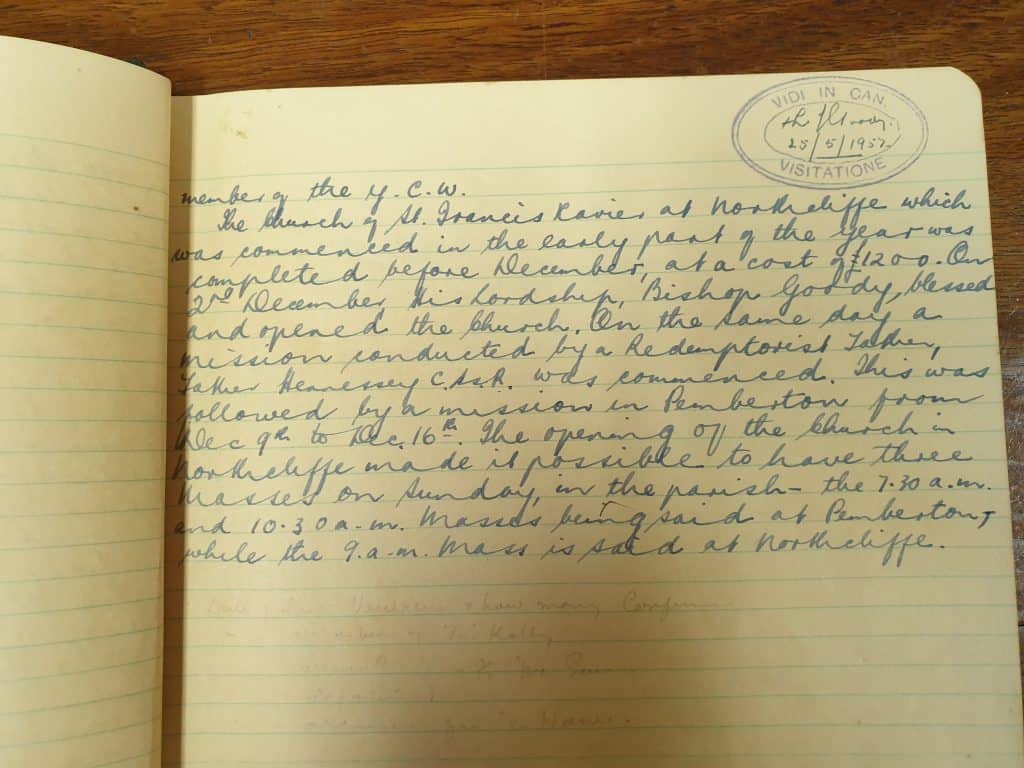 VIDI IN CAN.
25/5/1957
VISITATIONE
member of the Y.C.W.
The Church of St. Francis Xavier at Northcliffe which
was commenced in the early part of the year was
completed before December, at a cost of £1200. On
2nd December, His Lordship, Bishop Goody, blessed
and opened the Church. On the same day a
mission conducted by a Redemptorist Father,
Father Hennessey C.Ss.R. was commenced. This was
followed by a mission in Pemberton from
Dec 9th to Dec. 16th. The opening of the Church in
Northcliffe made it possible to have three
Masses on Sunday, in the parish - the 7.30 a.m.
and 10.30 a.m. Masses being said at Pemberton,
while the 9.a.m. Mass is said at Northcliffe.
how many
Kelly